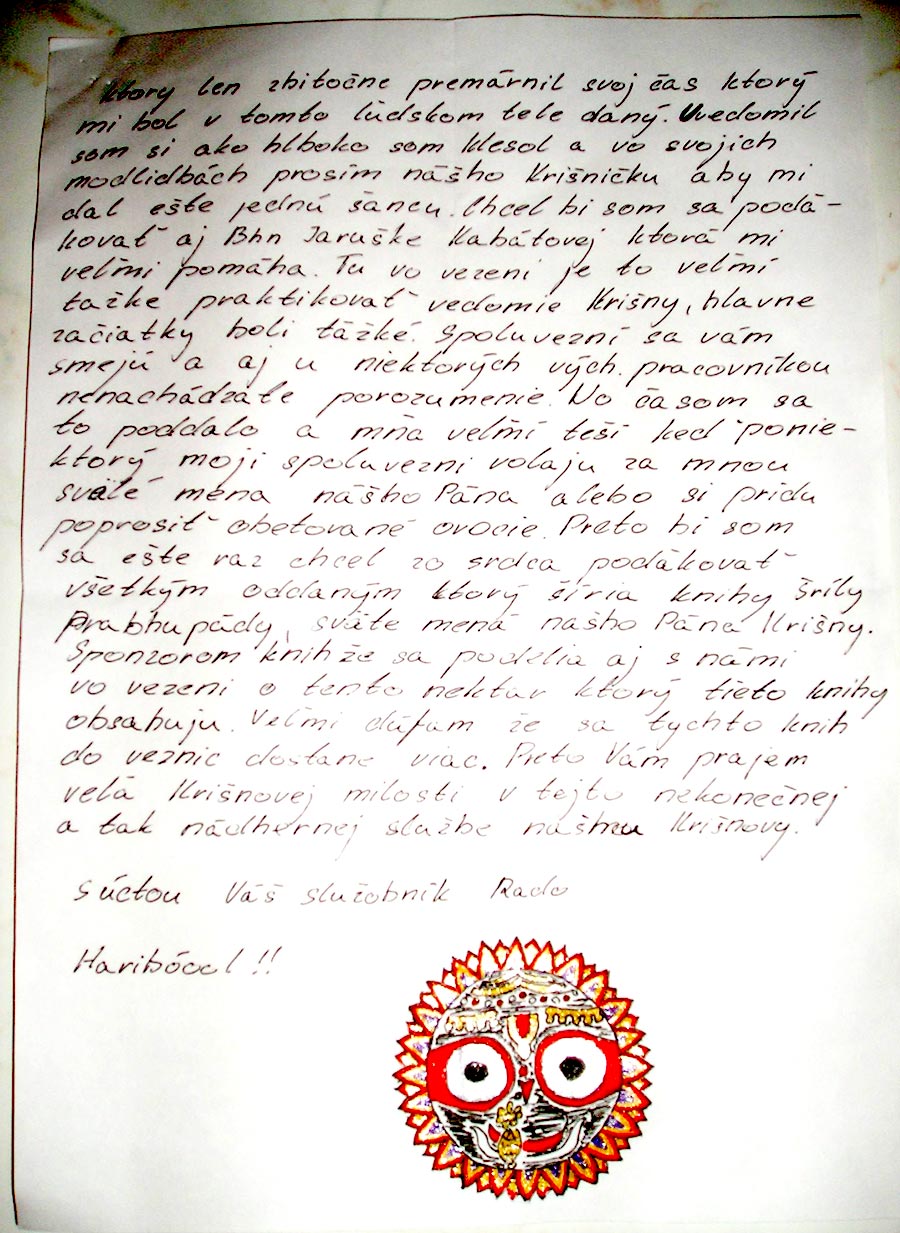 ktorý len zbitočne premárnil svoj čas ktorý
mi bol v tomto ľudskom tele daný. Uvedomil
som si ako hlboko som klesol a vo svojich
modlidbách prosím nášho Krišničku aby mi
dal ešte jednú šancu. Chcel bi som sa podà-
kovať aj Bhn Jaruške Kabátovej ktorá mi
veľmi pomáha. Tu vo vezeni je to veľmi
tažke praktikovať vedomie Krišny, hlavne
začiatky boli tážké. Spoluvezní sa vám
smejú a aj u niektorých vých. pracovníkou
nenachádzate porozumenie. No časom sa
to poddalo a mňa veľmi teší keď ponie-
ktorý moji spoluvezni volaju za mnou
sväté mena nášho Pána alebo si pridu
poprosiť obetované ovocie. Preto bi som
sa ešte raz chcel zo srdca podákovať
všetkým oddaným ktorý šíria knihy Šríly
Prabhupády, sväte mená našho Pána Krišny.
Sponzorom knih že sa podelia aj s námi
vo vezeni o tento nektar ktorý tieto knihy
obsahuju. Veľmi dúfam že sa tychto knih
do veznic dostane viac. Preto Vám prajem
velà Krišnovej milosti v tejto nekonečnej
a tak nádhernej službe našmu Krišnovy.
S úctou Váš služobník Rado
Haribóool!!